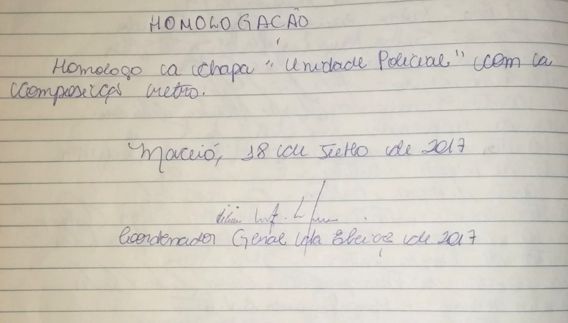 HOMOLOGAÇÃO
Homologo a Chapa "Unidade Policial" com a
Composição retro.
Maceió, 18 de Julho de 2017
Coordenador Geral da Eleição de 2017